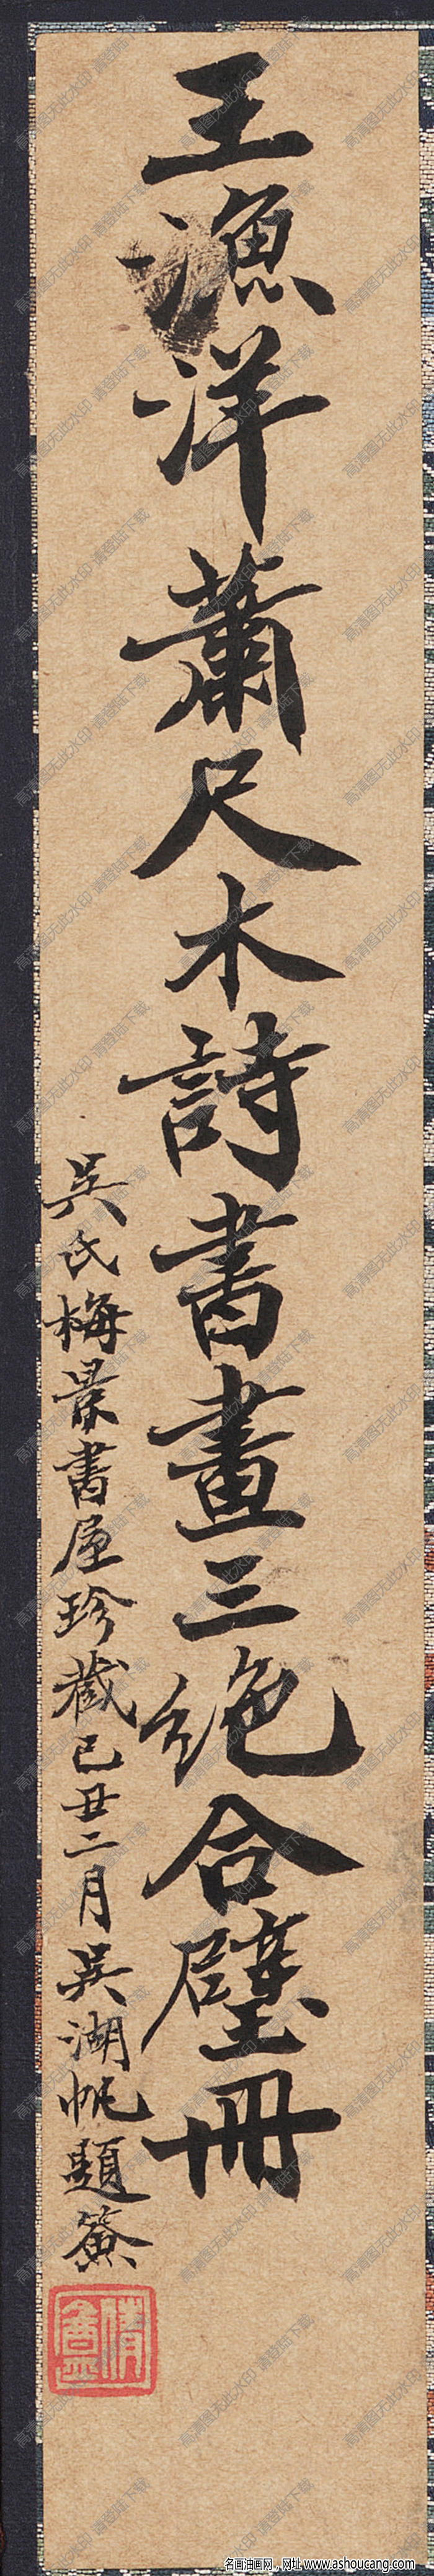 王漁洋蕭尺木詩書畫三絕合璧冊
吳氏梅景書屋珍藏己丑二月吳湖帆題簽
倩盦
名画油画网，网址 www.ashoucang.com